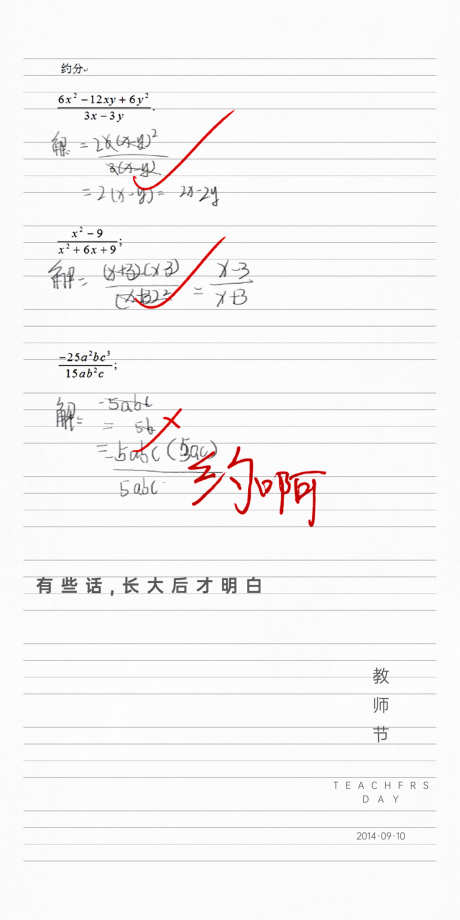 约分
6x² −12xy + 6y²
3x − 3y
解 = 2x(x-y)²
3(x-y)
= 2(x-y) = 2x-2y
x² − 9
x² + 6x + 9 ;
解 = (x+3)(x-3)
(x+3)² = x-3
x+3
−25a²bc³
15ab²c ;
解 = -5abc
= 5b
= -5abc(5ac)
5abc
约啊
有些话，长大后才明白
教
师
节
TEACHFRS
DAY
2014·09·10